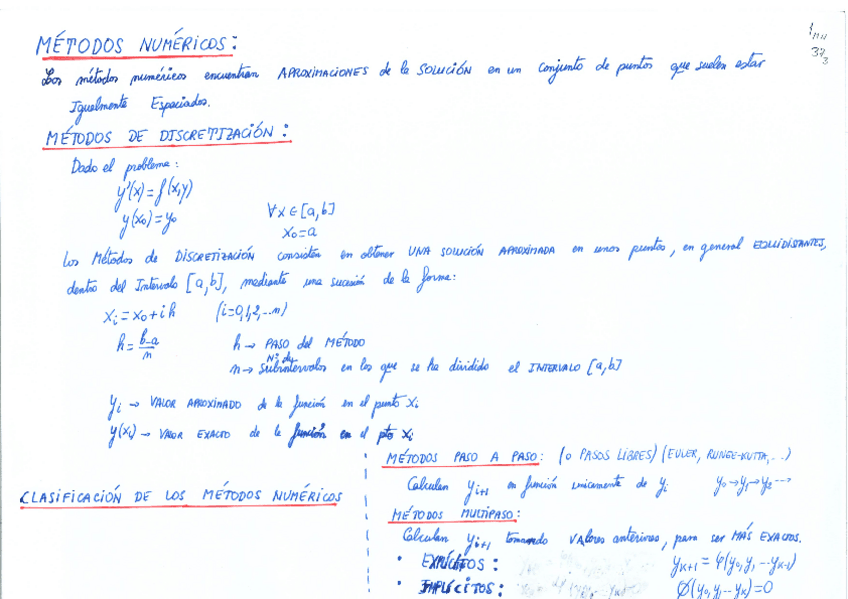 MÉTODOS NUMÉRICOS:
Los métodos numéricos encuentran APROXIMACIONES de la SOLUCIÓN en un conjunto de puntos que suelen estar
Igualmente Espaciados.
MÉTODOS DE DISCRETIZACIÓN:
Dado el problema:
y'(x)=f(x,y)
y(x₀)=y₀ ∀x∈[a,b]
x₀=a
Los Métodos de DISCRETIZACIÓN consisten en obtener UNA SOLUCIÓN APROXIMADA en unos puntos, en general EQUIDISTANTES,
dentro del Intervalo [a,b], mediante una sucesión de la forma:
xᵢ=x₀+ih (i=0,1,2,...n)
h=b-a/n h→ PASO del MÉTODO
n→ Nº de Subintervalos en los que se ha dividido el INTERVALO [a,b]
yᵢ→ VALOR APROXIMADO de la función en el punto xᵢ
y(xᵢ)→ VALOR EXACTO de la función en el pto xᵢ
CLASIFICACIÓN DE LOS MÉTODOS NUMÉRICOS
MÉTODOS PASO A PASO: (o PASOS LIBRES) (EULER, RUNGE-KUTTA,...)
Calculan yᵢ₊₁ en función unicamente de yᵢ y₀→y₁→y₂---→
MÉTODOS MULTIPASO:
Calculan yᵢ₊₁ tomando VALORES anteriores, para ser MÁS EXACTOS.
• EXPLÍCITOS: yₖ₊₁=φ(y₀,y,...yₖ₋₁)
• IMPLÍCITOS: ϕ(y₀,y,...yₖ)=0